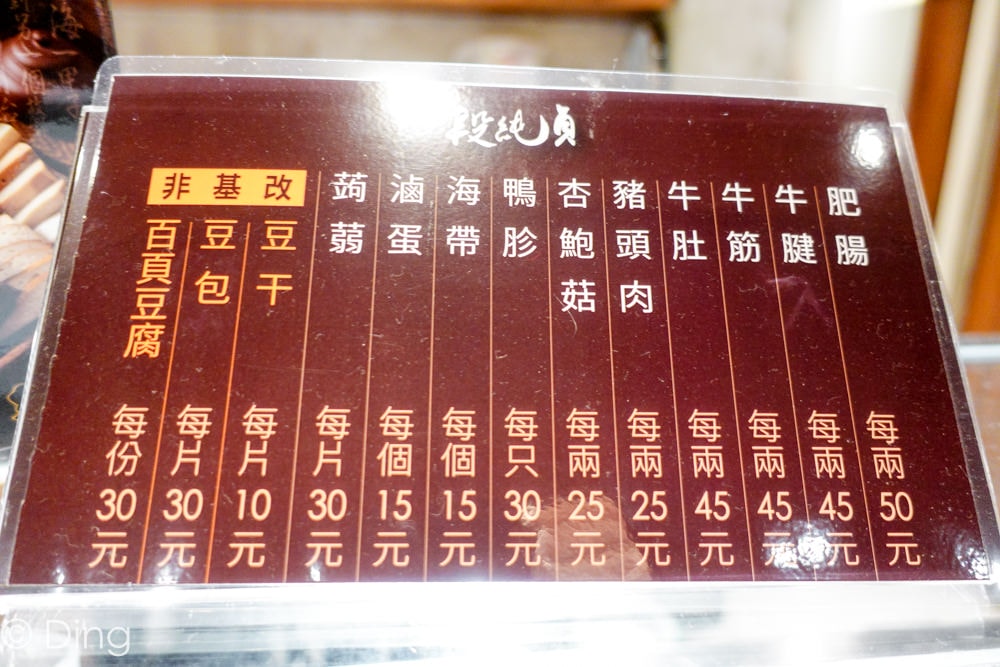 段純貞
肥腸 每兩 50元
牛腱 每兩 45元
牛筋 每兩 45元
牛肚 每兩 45元
豬頭肉 每兩 25元
杏鮑菇 每兩 25元
鴨胗 每只 30元
海帶 每個 15元
滷蛋 每個 15元
蒟蒻 每片 30元
非基改
豆干 每片 10元
豆包 每片 30元
百頁豆腐 每份 30元
© Ding